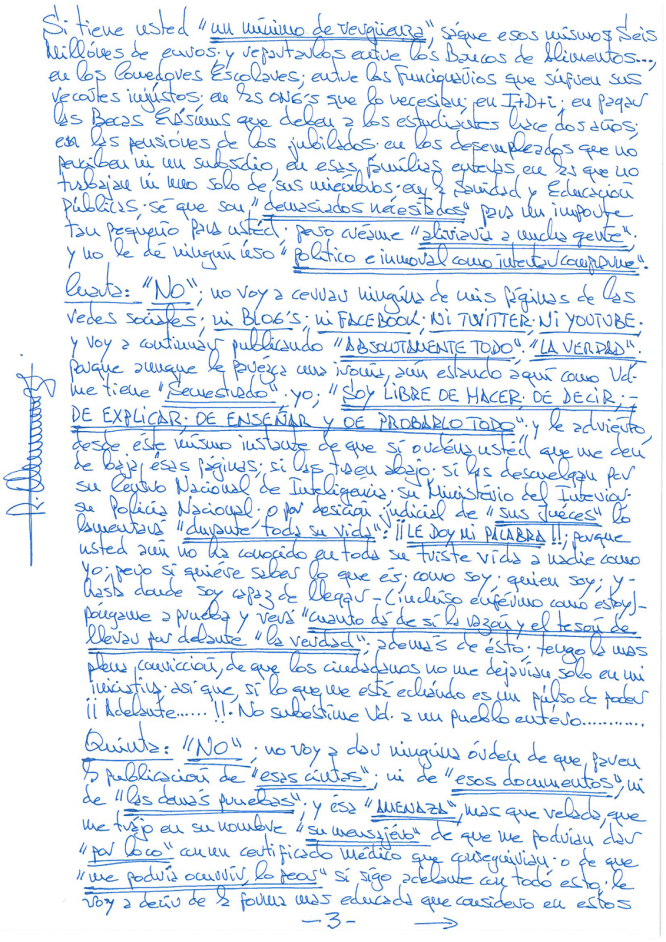 Si tiene usted "un mínimo de vergüenza", sáque esos mismos Seis
Millónes de euros y repartarlos entre los Bancos de Alimentos...,
en los Comedores Escolares; entre los Funcionarios que súfren sus
recortes injustos; en las ONG's que lo necesitan; en I+D+i; en pagar
las Becas Erásmus que deben a los estudiantes hace dos años;
en las pensiones de los jubilados; en los desempleados que no
perciben ni un subsidio, en esas familias enteras en las que no
trabajan ni uno solo de sus miembros; en la Sanidad y Educación
Públicas. sé que son "demasiados necesitados" para un importe
tan pequeño para usted; pero créame "aliviaría a mucha gente";
y no le dé ningún úso "político e inmoral como intentar comprarme".
Cuarta: "NO"; no voy a cerrar ningúna de mis páginas de las
redes sociales; ni BLOG'S; ni FACEBOOK; NI TWITTER; NI YOUTUBE;
y voy a continuar publicando "ABSOLUTAMENTE TODO"; "LA VERDAD"
porque aunque le parézca una ironía, aún estando aquí como Vd.
me tiene "Secuestrado"; yo; "SOY LIBRE DE HACER; DE DECIR;-
DE EXPLICAR; DE ENSEÑAR y DE PROBARLO TODO"; y le advierto,
desde éste mismo instante de que si ordéna usted que me den
de baja ésas páginas; si las tiran abajo; si las descuelgan por
su Centro Nacional de Inteligencia; su Ministerio del Interior
su Policía Nacional; o por desición judicial de "sus Juéces" lo
lamentará "durante toda su vida"; ¡¡LE DOY MI PALABRA!!; porque
usted aún no ha conocido en toda su triste vida a nadie como
yo; pero si quiére saber lo que és; como soy; quien soy; y-
hasta donde soy capaz de llegar- (incluso enfermo como estoy)-
póngame a prueba y verá "cuanto dá de si la razón y el tesón de
llevar por delante "la verdad"; además de ésto; tengo la mas
plena convicción, de que los ciudadanos no me dejarían solo en mi
iniciativa. así que, si lo que me está echando es un púlso de poder
¡¡Adelante......!!. No subestime Vd. a un pueblo entéro............
Quinta: "NO"; no voy a dar ningúna órden de que paren
la publicación de "esas cintas"; ni de "esos documentos"; ni
de "las demás pruebas"; y ésa "AMENAZA", mas que velada, que
me trajo en su nombre "su mensajéro" de que me podrían dar
"por loco" con un certificado médico que conseguirían; o de que
"me podría ocurrir, lo peor" si sigo adelante con todo esto; le
voy a decir de la forma mas educada que considero en estos
-3- →